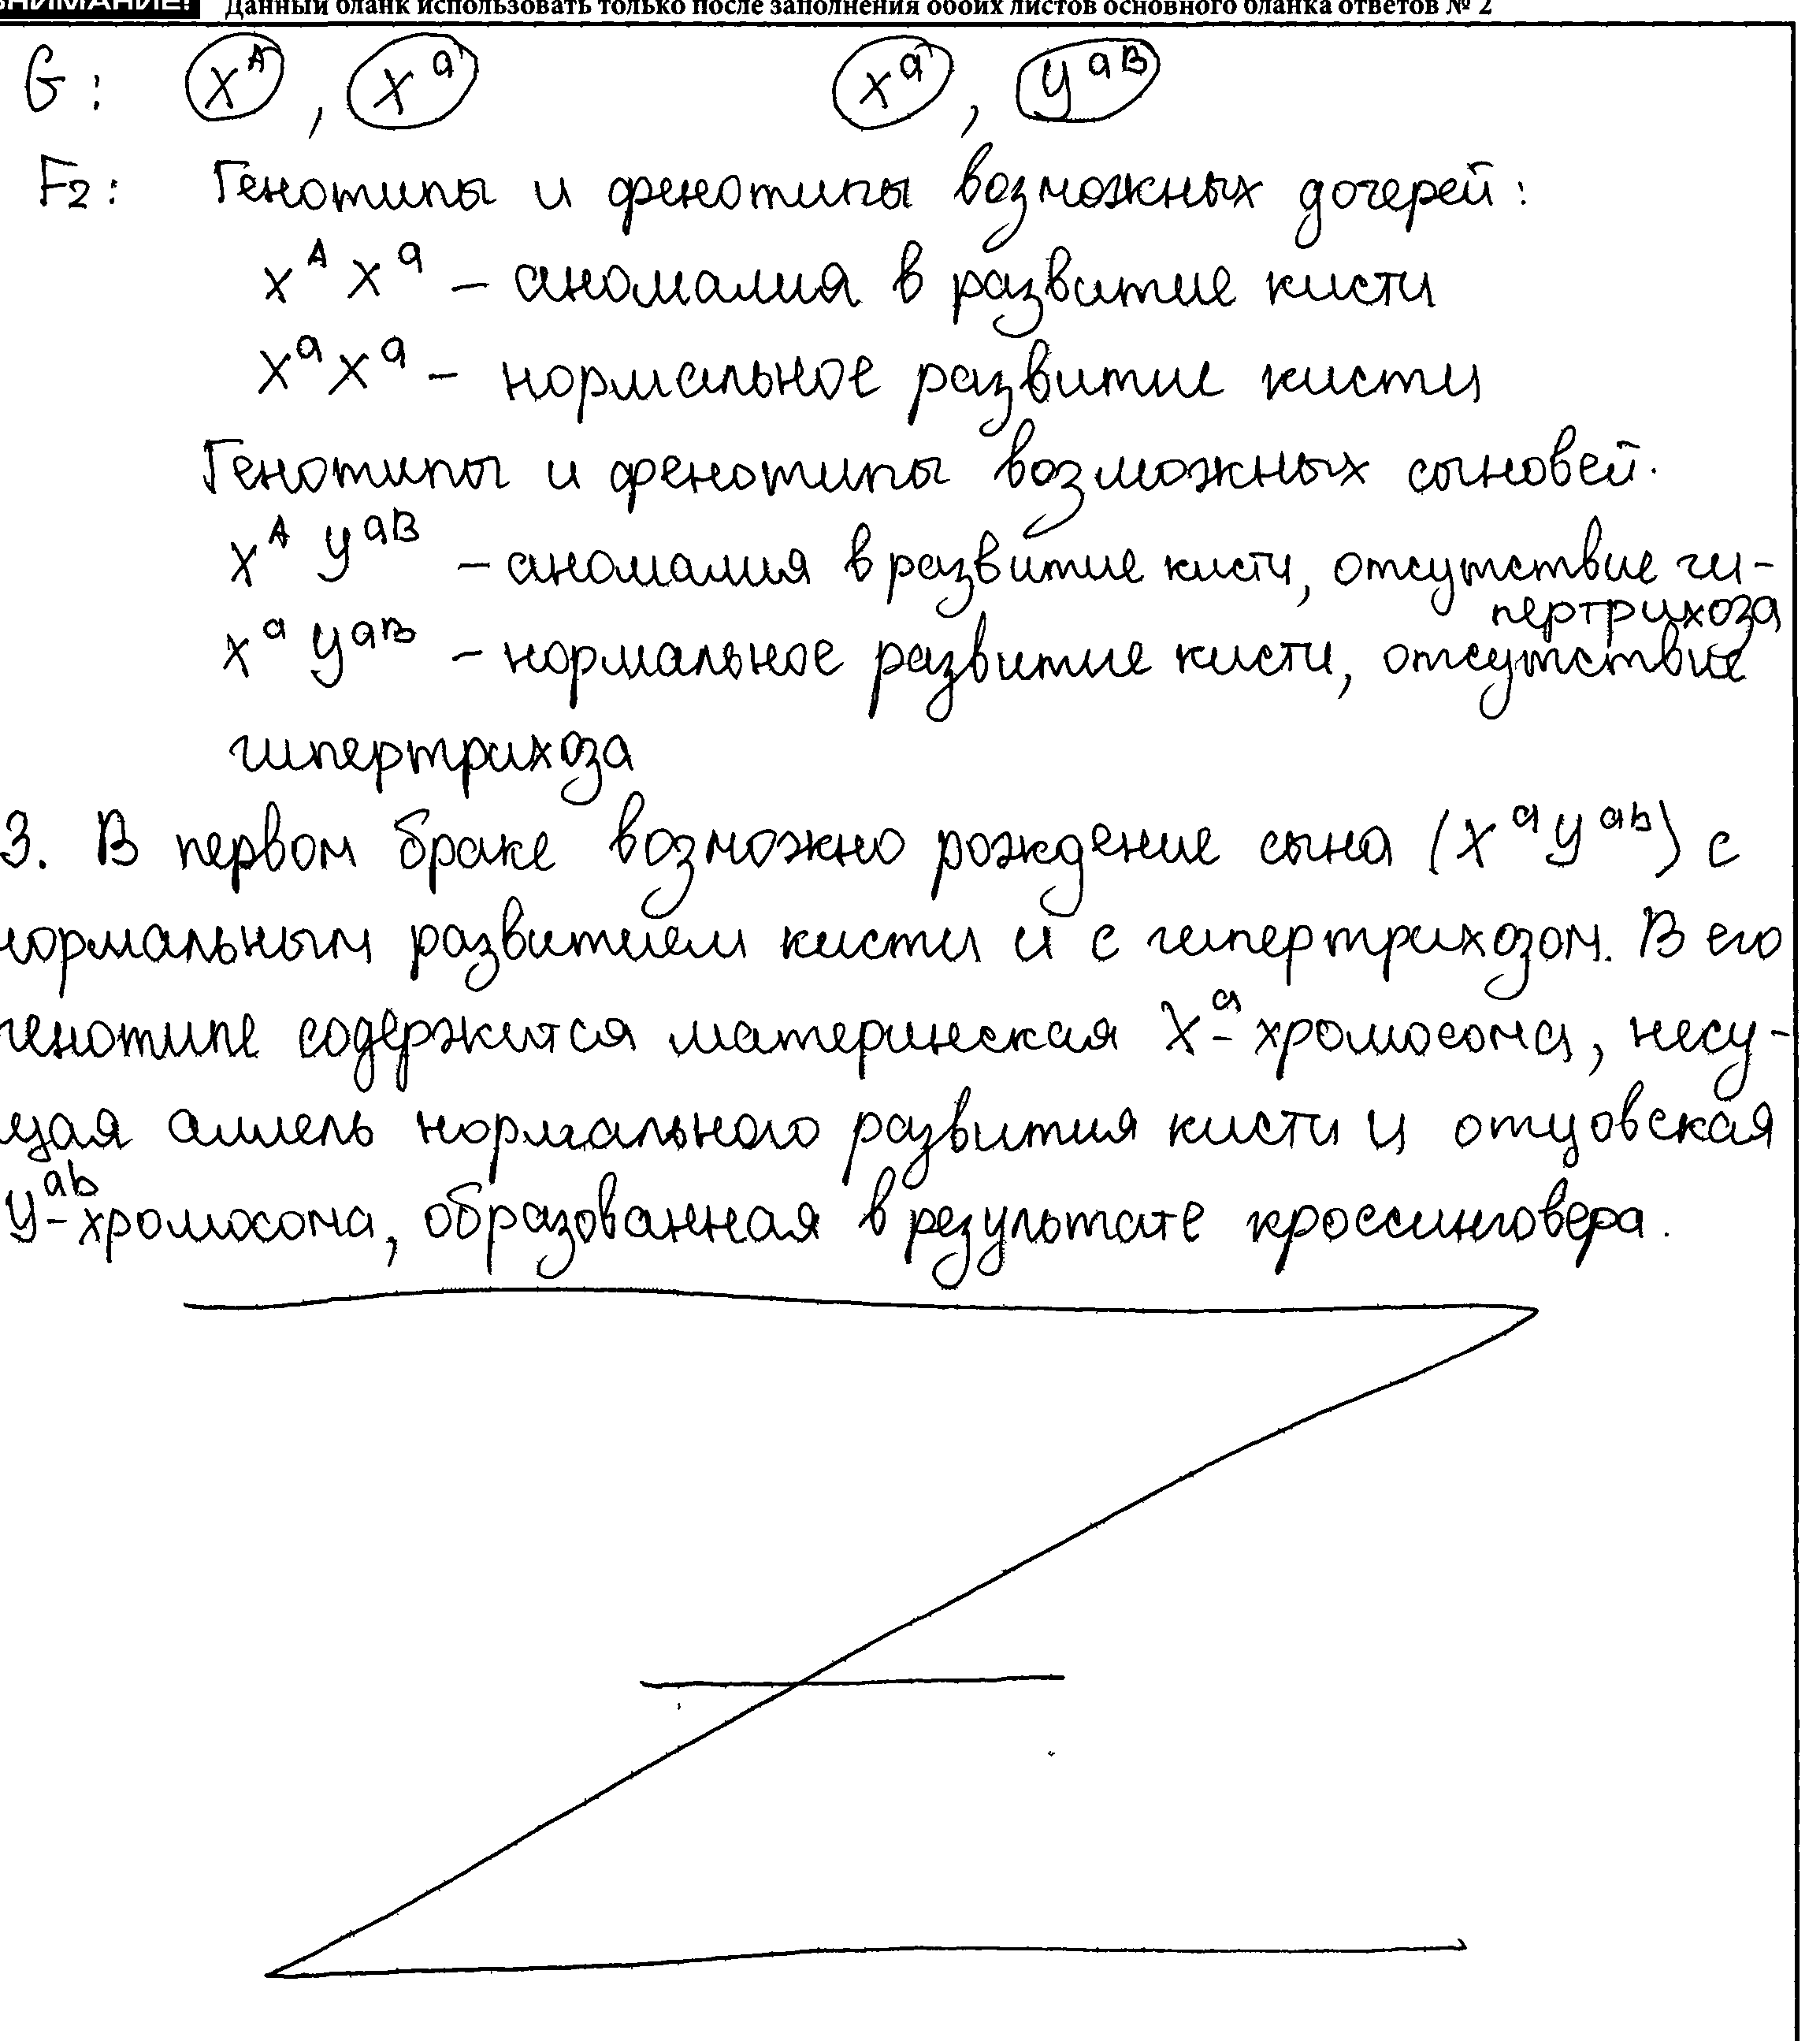 ВНИМАНИЕ! Данный бланк использовать только после заполнения обоих листов основного бланка ответов № 2
G: X^A, X^a X^a, Y^aB
F2: Генотипы и фенотипы возможных дочерей:
X^A X^a – аномалия в развитие кисти
X^a X^a – нормальное развитие кисти
Генотипы и фенотипы возможных сыновей.
X^A Y^aB – аномалия в развитие кисти, отсутствие ги-
пертрихоза
X^a Y^aB – нормальное развитие кисти, отсутствие
гипертрихоза
3. В первом браке возможно рождение сына (X^a Y^ab) с
нормальным развитием кисти и с гипертрихозом. В его
генотипе содержится материнская X^a-хромосома, несу-
щая аллель нормального развития кисти и отцовская
Y^ab-хромосома, образованная в результате кроссинговера.